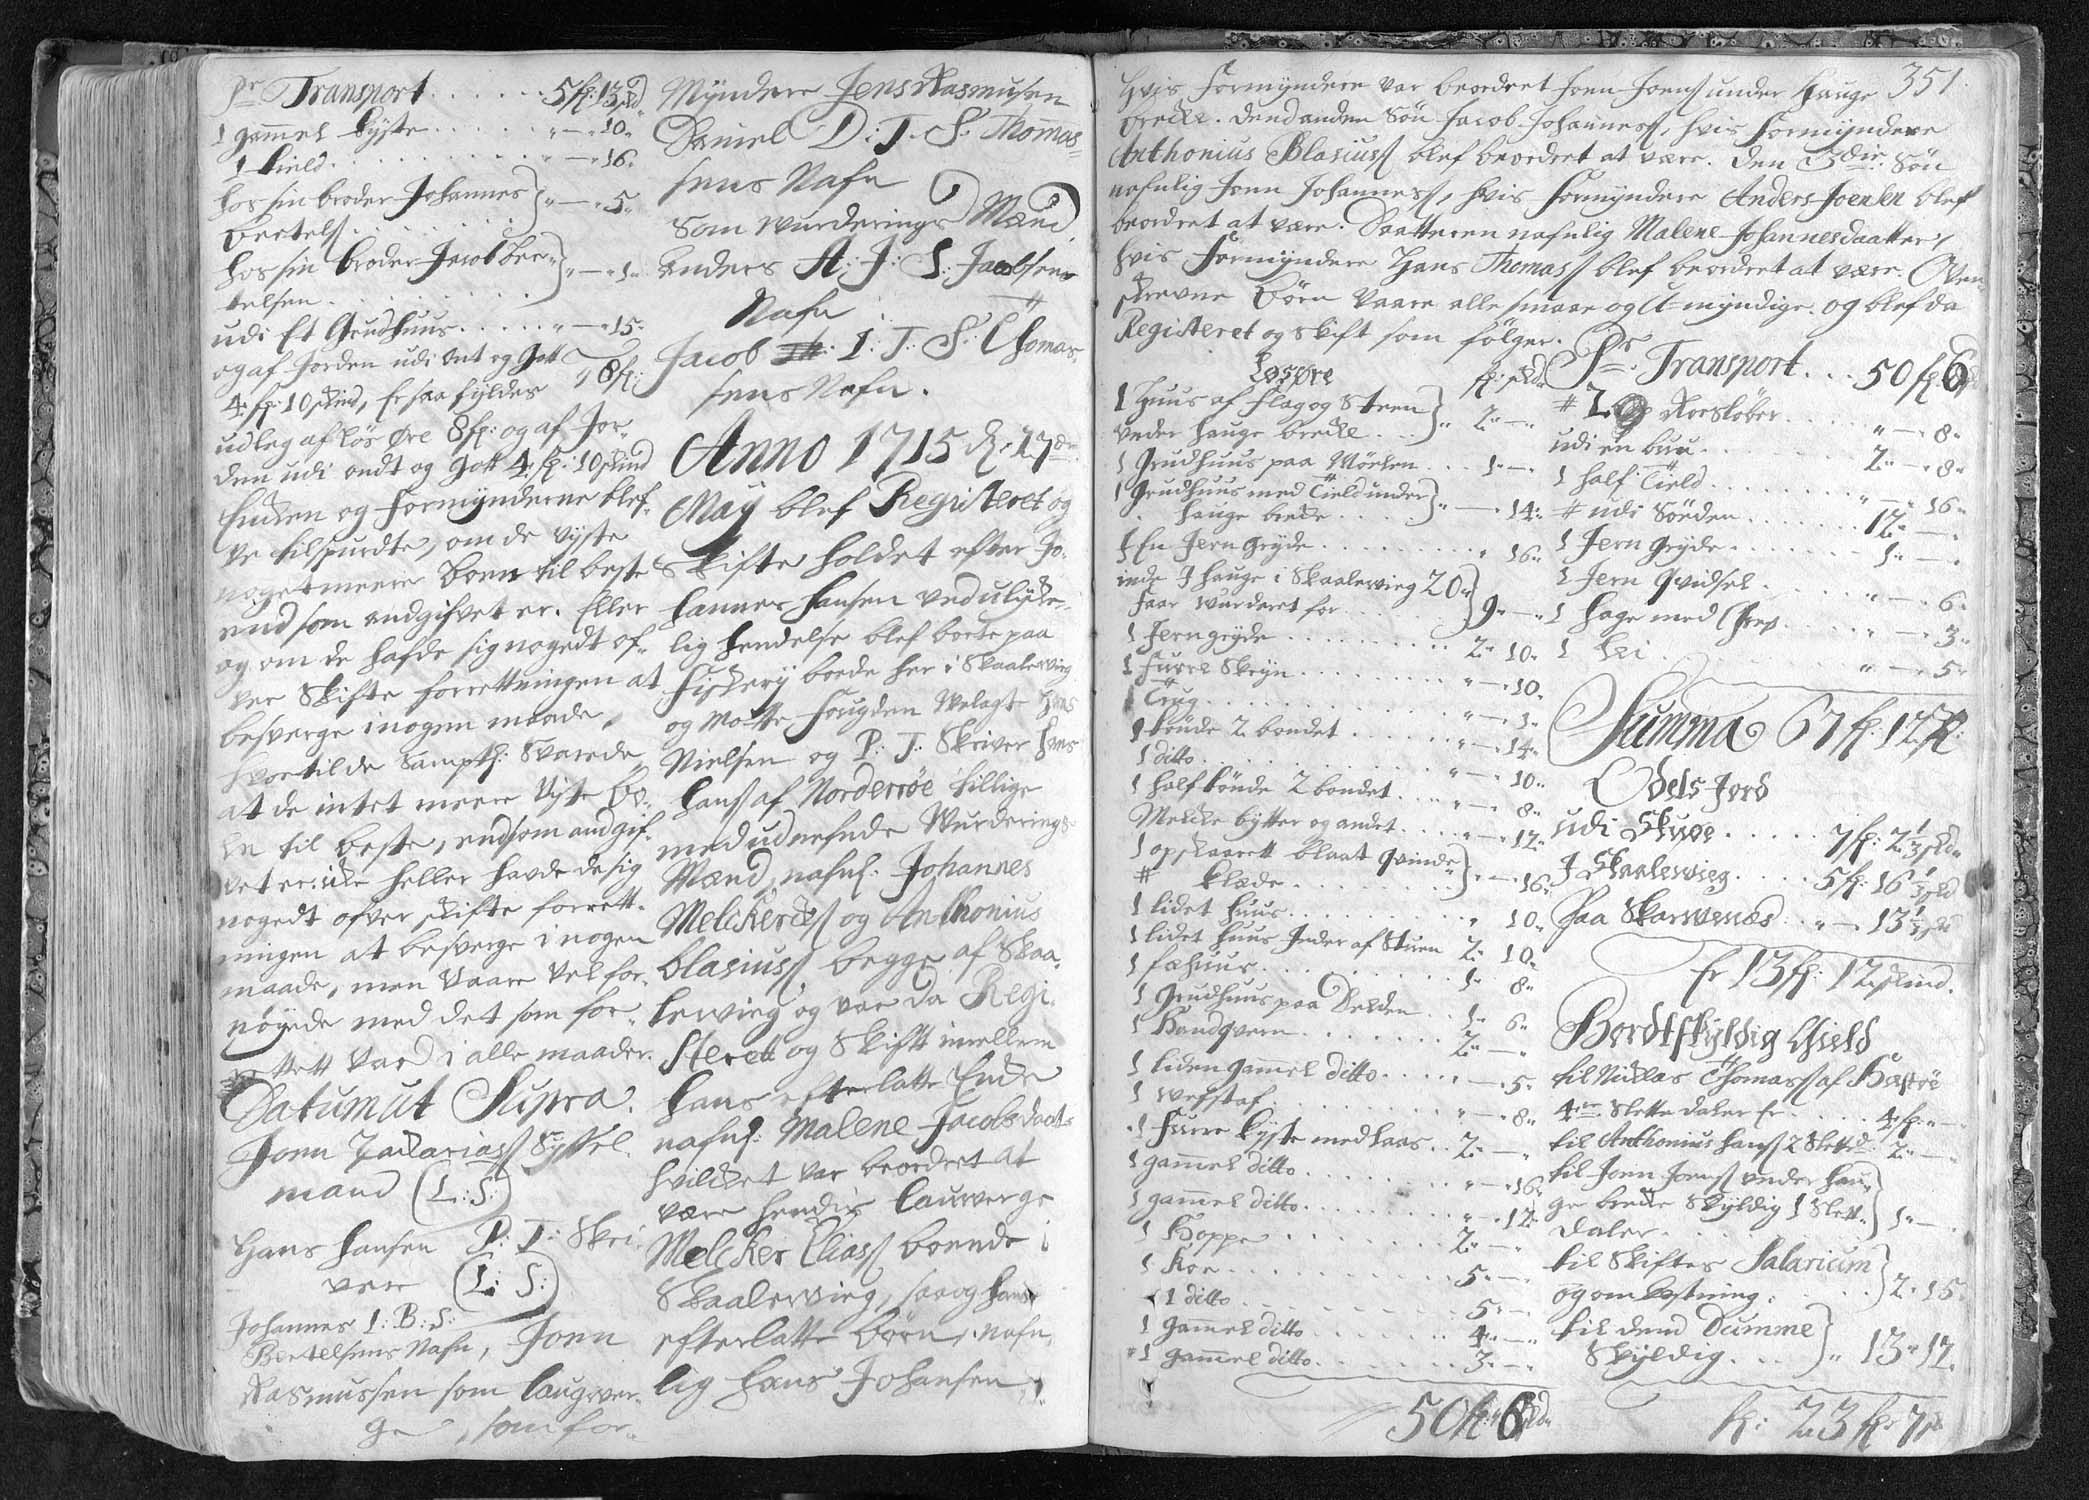 Pr Transport . . . . . . 5 fl: 13 skd
1 gammel Kyste . . . . . " — " 10 "
1 Kield . . . . . . . " — " 16 "
hos sin broder Johannes } " — " 5 "
Bertels . . . . . .
hos sin broder Jacob Ber= } " — " 1 "
telsen . . . . . . .
udi Et Grudhuus . . . . . " — " 15 "
og af Jorden udi ont og Gott
4 fl: 10 skind, Er saa fyldes " 8 fl:
udleg af Løs Øre 8 fl: og af Jor=
den udi ondt og Gott 4 fl: 10 skind
Encken og Formynderne blef=
ve tilspurdte, om de viste
noget meere Boen til beste
end som andgifvet er. Eller
og om de hafde sig nogedt of=
ver Skifte forrettningen at
besverge i nogen maade,
hvortil de Sampth: Svarede,
at de intet meere Viste Bo=
en til beste, end som andgif=
vet er: icke heller havde de sig
nogedt ofver skifte forrett=
ningen at besverge i nogen
maade, men Vaare Vel for=
nøyede med det som for=
rettet Var i alle maader.
Datum ut Supra.
Joen Zacharias Syssel
mand (L: S:)
Hans Hansen P: T: Skri=
ver (L: S:)
Johannes I: B: S:
Bertelsens Nafn, Joen
Rasmussen som laugver=
ge, som for=
Myndere Jens Rasmusen
Daniel D: T: S: Thomas=
sens Nafn
Som Wurderings Mænd
Anders A: J: S: Jacobsens
Nafn
Jacob I: T: S: Thomas=
sens Nafn.
Anno 1715 d: 17de
May blef Registeret og
Skifte holdet efter Jo=
hannes Hansen ved ulycke=
lig hendelse blef borte paa
Fiskery boede her i Skaalewieg
og Motte Fougden Welagt Hans
Nielsen og P: T: Skriver Hans
Hans af Norderrøe tillige
med udnefnde Wurderings
Mænd, nafnl: Johannes
Melckers og Anthonius
Blasius begge af Skaa=
lewieg og var da Regi=
steret og Skift imellem
hans efterlatte Encke
nafnl: Malene Jacobsdaat
hvilcket var beordret at
være hendis laugverge
Melcker Elias boende i
Skaalewieg, saa og hans
efterlatte Børn, nafn=
lig Hans Johansen,
351
hvis Formyndere var beordret Joen Joens under Hauge
brecke. Dend anden Søn Jacob Johannes, hvis Formyndere
Anthonius Blasius blef beordret at være. Den 3die Søn
nafnlig Joen Johannes, hvis Formyndere Anders Joensen blef
beordret at være. Daatteren nafnlig Malene Johannesdaatter,
hvis Formyndere Hans Thomas blef beordret at være. Oven=
skrevne Børn Vaare alle smaae og U=myndige. og blef da
Registeret og Skift som følger.
Løsøre fl: skd
1 Huus af Flag og Steen } " 2 " — "
under Hauge brecke . . .
1 Grudhuus paa Mørcken . . . 1 " — "
1 Grudhuus med Tield under } " — " 14 "
hauge brecke . . . .
1 En Jern Gryde . . . . . . " 16 "
inde J hauge i Skaalewieg 20 } 9 " — "
Faar Wurderet for . . . .
1 Jern gryde . . . . . . 2 " 10 "
1 Furre Skryn . . . . . . " — " 10 "
1 Trug . . . . . . . " — " 3 "
1 tønde 2 bondet . . . . . " — " 14 "
1 ditto . . . . . . . " — " 10 "
1 half tønde 2 bondet . . . " — " 8 "
Melcke bytter og andet . . . . " — " 12 "
1 opskaarett blaat Qvinde } " — " 16 "
# Klæde . . . . . .
1 lidet huus . . . . . . " 10 "
1 lidet huus Inder af Stuen 2 " 10 "
1 fæhuus . . . . . . 1 " 8 "
1 Grudhuus paa Velden . . 1 " 6 "
1 Handqvern . . . . . . 2 " — "
1 liden gammel ditto . . . . " — " 5 "
1 Wefstaf . . . . . . . " — " 8 "
1 Furre Kyste med laas . . 2 " — "
1 gammel ditto . . . . . . " — " 16 "
1 gammel ditto . . . . . . " — " 12 "
1 Hoppe . . . . . . . 2 " — "
1 Koe . . . . . . . 5 " — "
1 ditto . . . . . . . 5 " — "
1 gammel ditto . . . . . . 4 " — "
1 gammel ditto . . . . . . 3 " — "
50 fl: 6 skd
Pr Transport . . . 50 fl 6
# 2 Korsklöber . . . . " — " 8 "
udi en buu . . . . . . 2 " — " 8 "
1 half Tield . . . . . . " — " 16 "
# udi Sørden . . . . . . 12 " — "
1 Jern Gryde . . . . . . 1 " — "
1 Jern Qvidsel . . . . . " — " 6 "
1 Hage med Grep . . . . " — " 3 "
1 Lei . . . . . . . " — " 5 "
Summa 67 fl: 12 sk:
Odels Jord
udi Skuøe . . . . . 7 fl: 2 1/3 skd
J Skaalewieg . . . . 5 fl: 16 1/3 skd
Paa Skarwenæs . . " — 13 1/3 skd
Er 13 fl: 12 skind.
Bordtskyldig Gield
til Nicklas Thomas af Hæstøe
4re Slette daler Er . . . . 4 fl: " — "
til Anthonius Hans 2 Slettd: 2 " — "
til Joen Joens under Hau= }
ge brecke Skyldig 1 Slet= } 1 " — "
daler . . .
til Skiftes Salarium } 2 " 15
og omkostning . . . .
til dend Dumme }
Skyldig . . . } " 13 " 12
fl: 23 fl: 7 sk